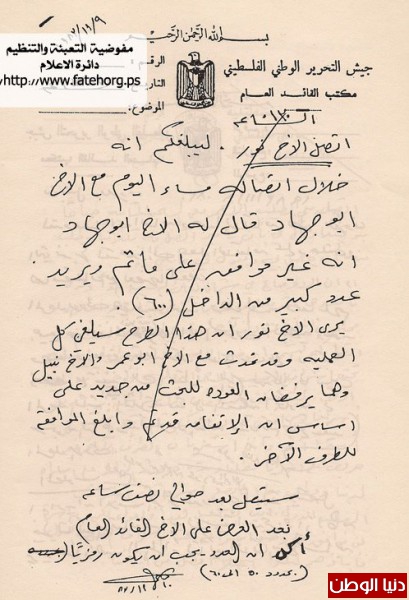 بسم الله الرحمن الرحيم
مفوضية التعبئة والتنظيم
دائرة الاعلام
http://www.fatehorg.ps
جيش التحرير الوطني الفلسطيني
مكتب القائد العام
الرقم:
الموضوع:
اتصل الأخ نور. ليبلغكم انه
خلال اتصاله مساء اليوم مع الأخ
ابو جهاد قال له الاخ ابو جهاد
انه غير موافقه على ما تم ويريد
عدد كبير من الداخل (٦٠٠).
يرى الأخ نور ان هذا الطرح سيلغي كل
العمليه وقد تحدث مع الأخ ابو عمر والأخ نبيل
وهما يرفضان العوده للبحث من جديد على
اساس ان الاتفاق قد تم وابلغ الموافقة
للطرف الآخر.
سيتصل بعد حوالي نصف ساعه
بعد العرض على الأخ القائد العام
أكد ان العدد يجب ان يكون رمزيًا
(بحدود ٥٠ الى ٦٠)
دنيا الوطن